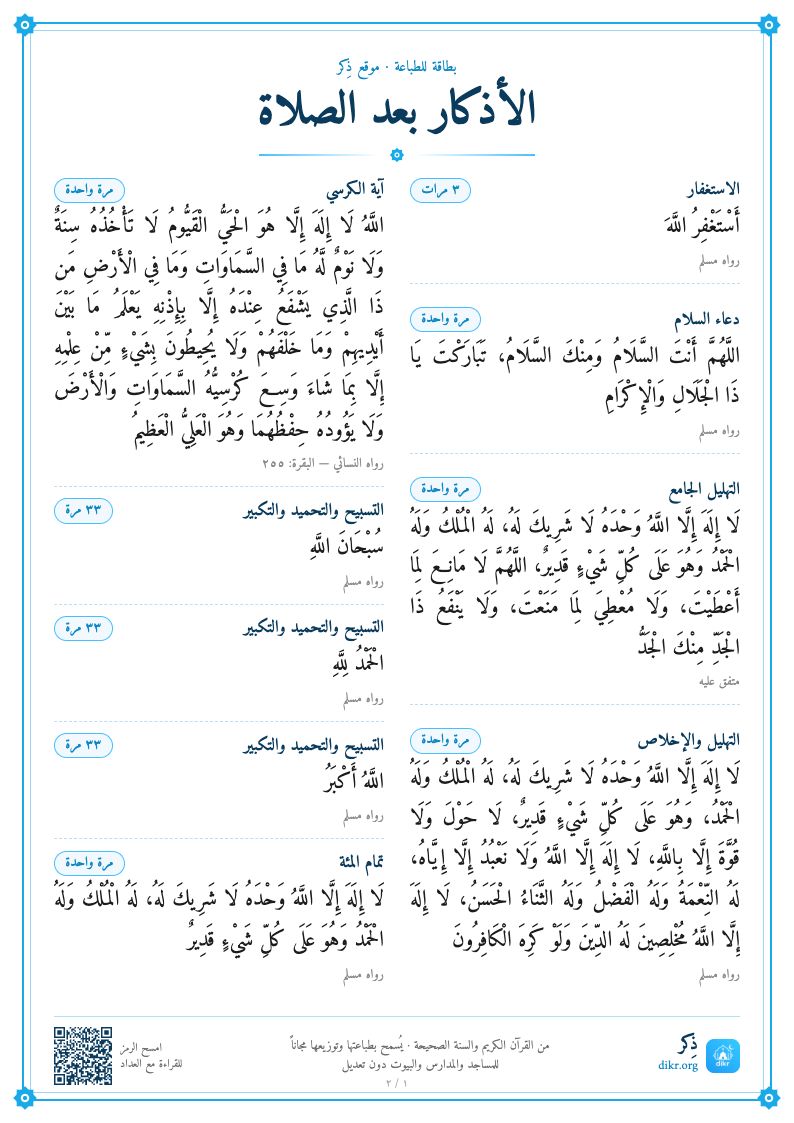 بطاقة للطباعة · موقع ذِكر
الأذكار بعد الصلاة
الاستغفار
٣ مرات
أَسْتَغْفِرُ اللَّهَ
رواه مسلم
دعاء السلام
مرة واحدة
اللَّهُمَّ أَنْتَ السَّلَامُ وَمِنْكَ السَّلَامُ، تَبَارَكْتَ يَا
ذَا الْجَلَالِ وَالْإِكْرَامِ
رواه مسلم
التهليل الجامع
مرة واحدة
لَا إِلَهَ إِلَّا اللَّهُ وَحْدَهُ لَا شَرِيكَ لَهُ، لَهُ الْمُلْكُ وَلَهُ
الْحَمْدُ وَهُوَ عَلَى كُلِّ شَيْءٍ قَدِيرٌ، اللَّهُمَّ لَا مَانِعَ لِمَا
أَعْطَيْتَ، وَلَا مُعْطِيَ لِمَا مَنَعْتَ، وَلَا يَنْفَعُ ذَا
الْجَدِّ مِنْكَ الْجَدُّ
متفق عليه
التهليل والإخلاص
مرة واحدة
لَا إِلَهَ إِلَّا اللَّهُ وَحْدَهُ لَا شَرِيكَ لَهُ، لَهُ الْمُلْكُ وَلَهُ
الْحَمْدُ، وَهُوَ عَلَى كُلِّ شَيْءٍ قَدِيرٌ، لَا حَوْلَ وَلَا
قُوَّةَ إِلَّا بِاللَّهِ، لَا إِلَهَ إِلَّا اللَّهُ وَلَا نَعْبُدُ إِلَّا إِيَّاهُ،
لَهُ النِّعْمَةُ وَلَهُ الْفَضْلُ وَلَهُ الثَّنَاءُ الْحَسَنُ، لَا إِلَهَ
إِلَّا اللَّهُ مُخْلِصِينَ لَهُ الدِّينَ وَلَوْ كَرِهَ الْكَافِرُونَ
رواه مسلم
آية الكرسي
مرة واحدة
اللَّهُ لَا إِلَهَ إِلَّا هُوَ الْحَيُّ الْقَيُّومُ لَا تَأْخُذُهُ سِنَةٌ
وَلَا نَوْمٌ لَّهُ مَا فِي السَّمَاوَاتِ وَمَا فِي الْأَرْضِ مَن
ذَا الَّذِي يَشْفَعُ عِنْدَهُ إِلَّا بِإِذْنِهِ يَعْلَمُ مَا بَيْنَ
أَيْدِيهِمْ وَمَا خَلْفَهُمْ وَلَا يُحِيطُونَ بِشَيْءٍ مِّنْ عِلْمِهِ
إِلَّا بِمَا شَاءَ وَسِعَ كُرْسِيُّهُ السَّمَاوَاتِ وَالْأَرْضَ
وَلَا يَؤُودُهُ حِفْظُهُمَا وَهُوَ الْعَلِيُّ الْعَظِيمُ
رواه النسائي — البقرة: ٢٥٥
التسبيح والتحميد والتكبير
٣٣ مرة
سُبْحَانَ اللَّهِ
رواه مسلم
التسبيح والتحميد والتكبير
٣٣ مرة
الْحَمْدُ لِلَّهِ
رواه مسلم
التسبيح والتحميد والتكبير
٣٣ مرة
اللَّهُ أَكْبَرُ
رواه مسلم
تمام المئة
مرة واحدة
لَا إِلَهَ إِلَّا اللَّهُ وَحْدَهُ لَا شَرِيكَ لَهُ، لَهُ الْمُلْكُ وَلَهُ
الْحَمْدُ وَهُوَ عَلَى كُلِّ شَيْءٍ قَدِيرٌ
رواه مسلم
dikr
ذِكر
dikr.org
من القرآن الكريم والسنة الصحيحة · يُسمح بطباعتها وتوزيعها مجاناً
للمساجد والمدارس والبيوت دون تعديل
١ / ٢
امسح الرمز
للقراءة مع العداد